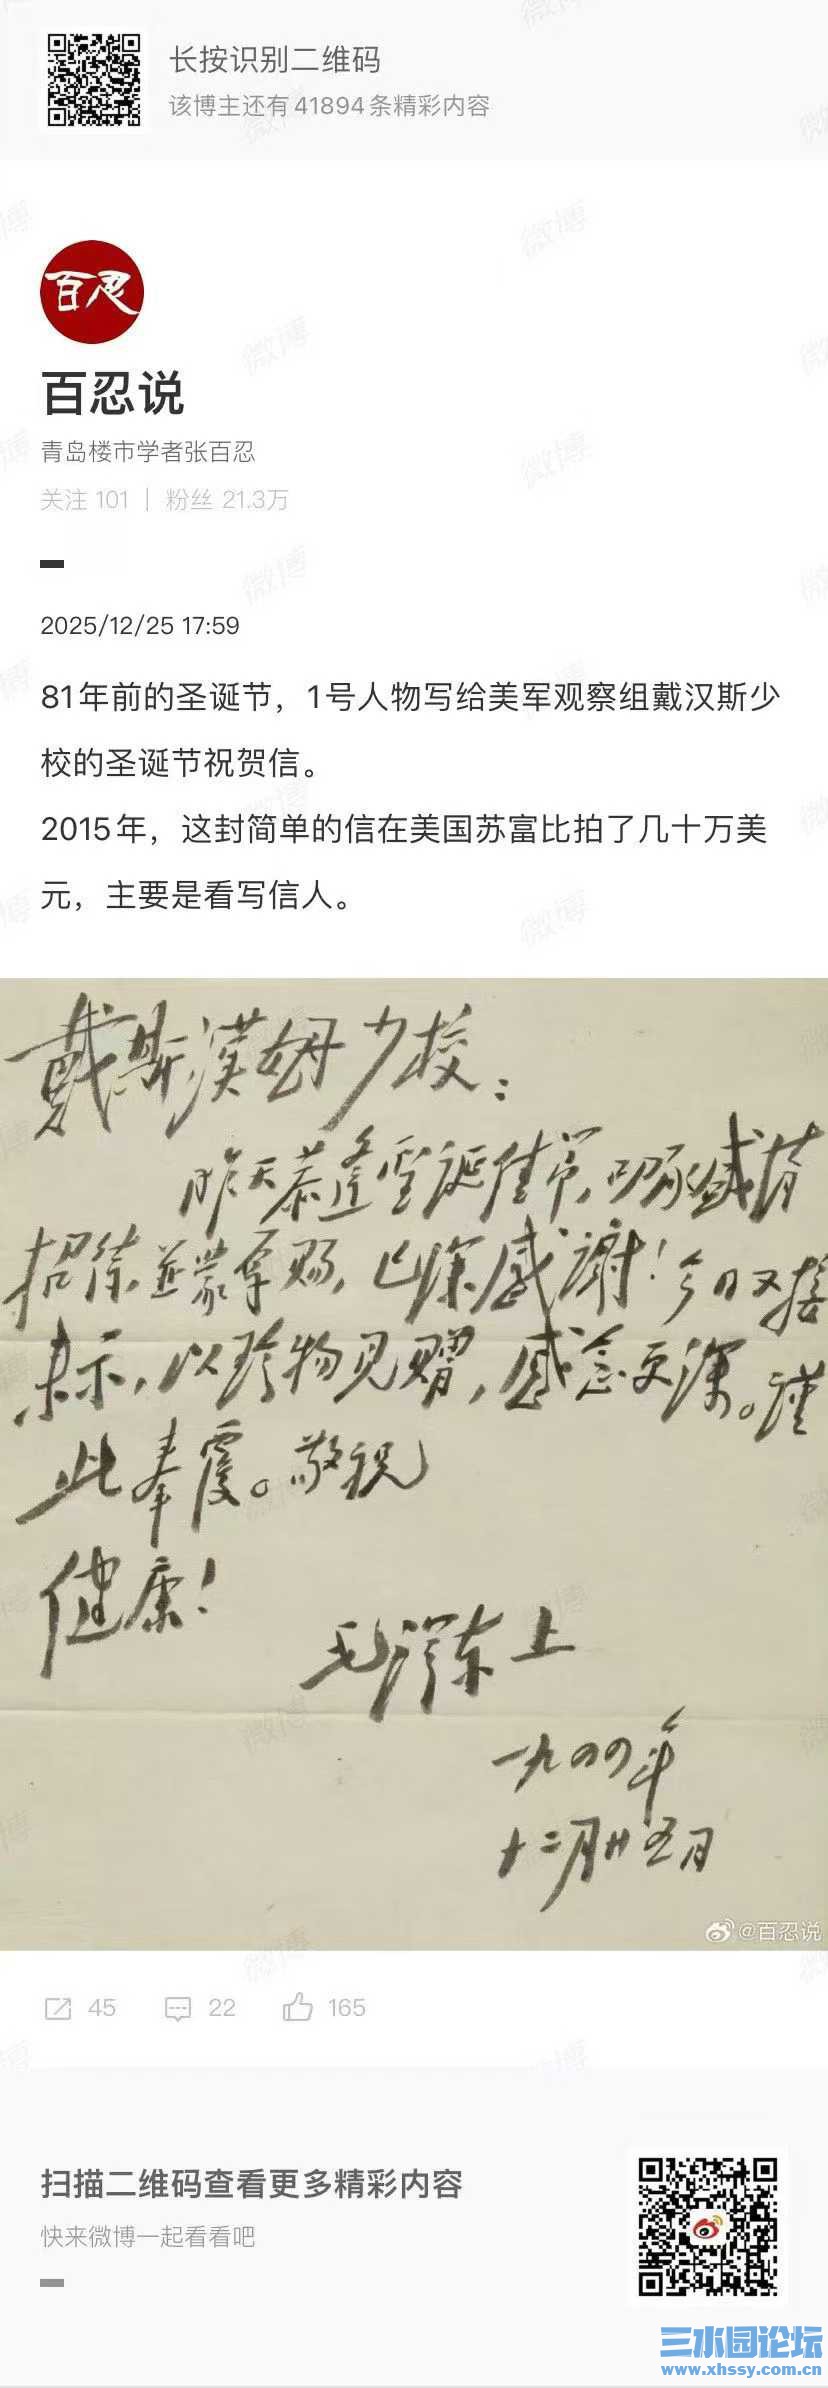 长按识别二维码
该博主还有41894条精彩内容
百忍
百忍说
青岛楼市学者张百忍
关注 101 | 粉丝 21.3万
2025/12/25 17:59
81年前的圣诞节，1号人物写给美军观察组戴汉斯少
校的圣诞节祝贺信。
2015年，这封简单的信在美国苏富比拍了几十万美
元，主要是看写信人。
戴斯漢姆少校：
昨天恭逢聖诞佳节，叨承盛情
招待，並蒙厚赐，已深感谢！今日又接
来示，以珍物见赠，感念更深。谨
此奉覆。敬祝
健康！
毛泽东上
一九四四年
十二月廿五日
@百忍说
45 22 165
扫描二维码查看更多精彩内容
快来微博一起看看吧
三水园论坛
www.xhssy.com.cn
微博